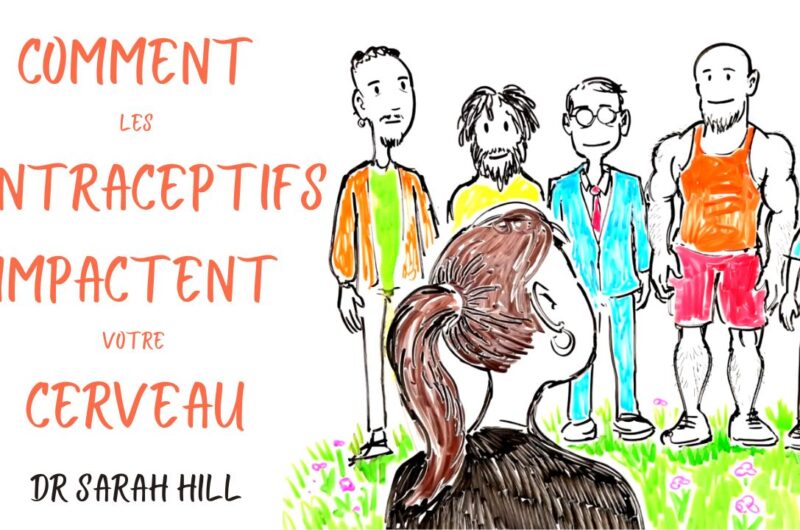 COMMENT
LES
NTRACEPTIFS
IMPACTENT
VOTRE
CERVEAU
DR SARAH HILL